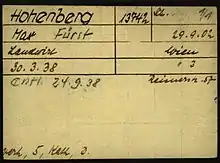 Hohenberg 13742 Sch. 1/1
Max Fürst 29.9.02
Landwirt Wien
30.3.38 " 3
Entl. 24.9.38 Reisnerstr. 57
verh, 5, Kath, D.